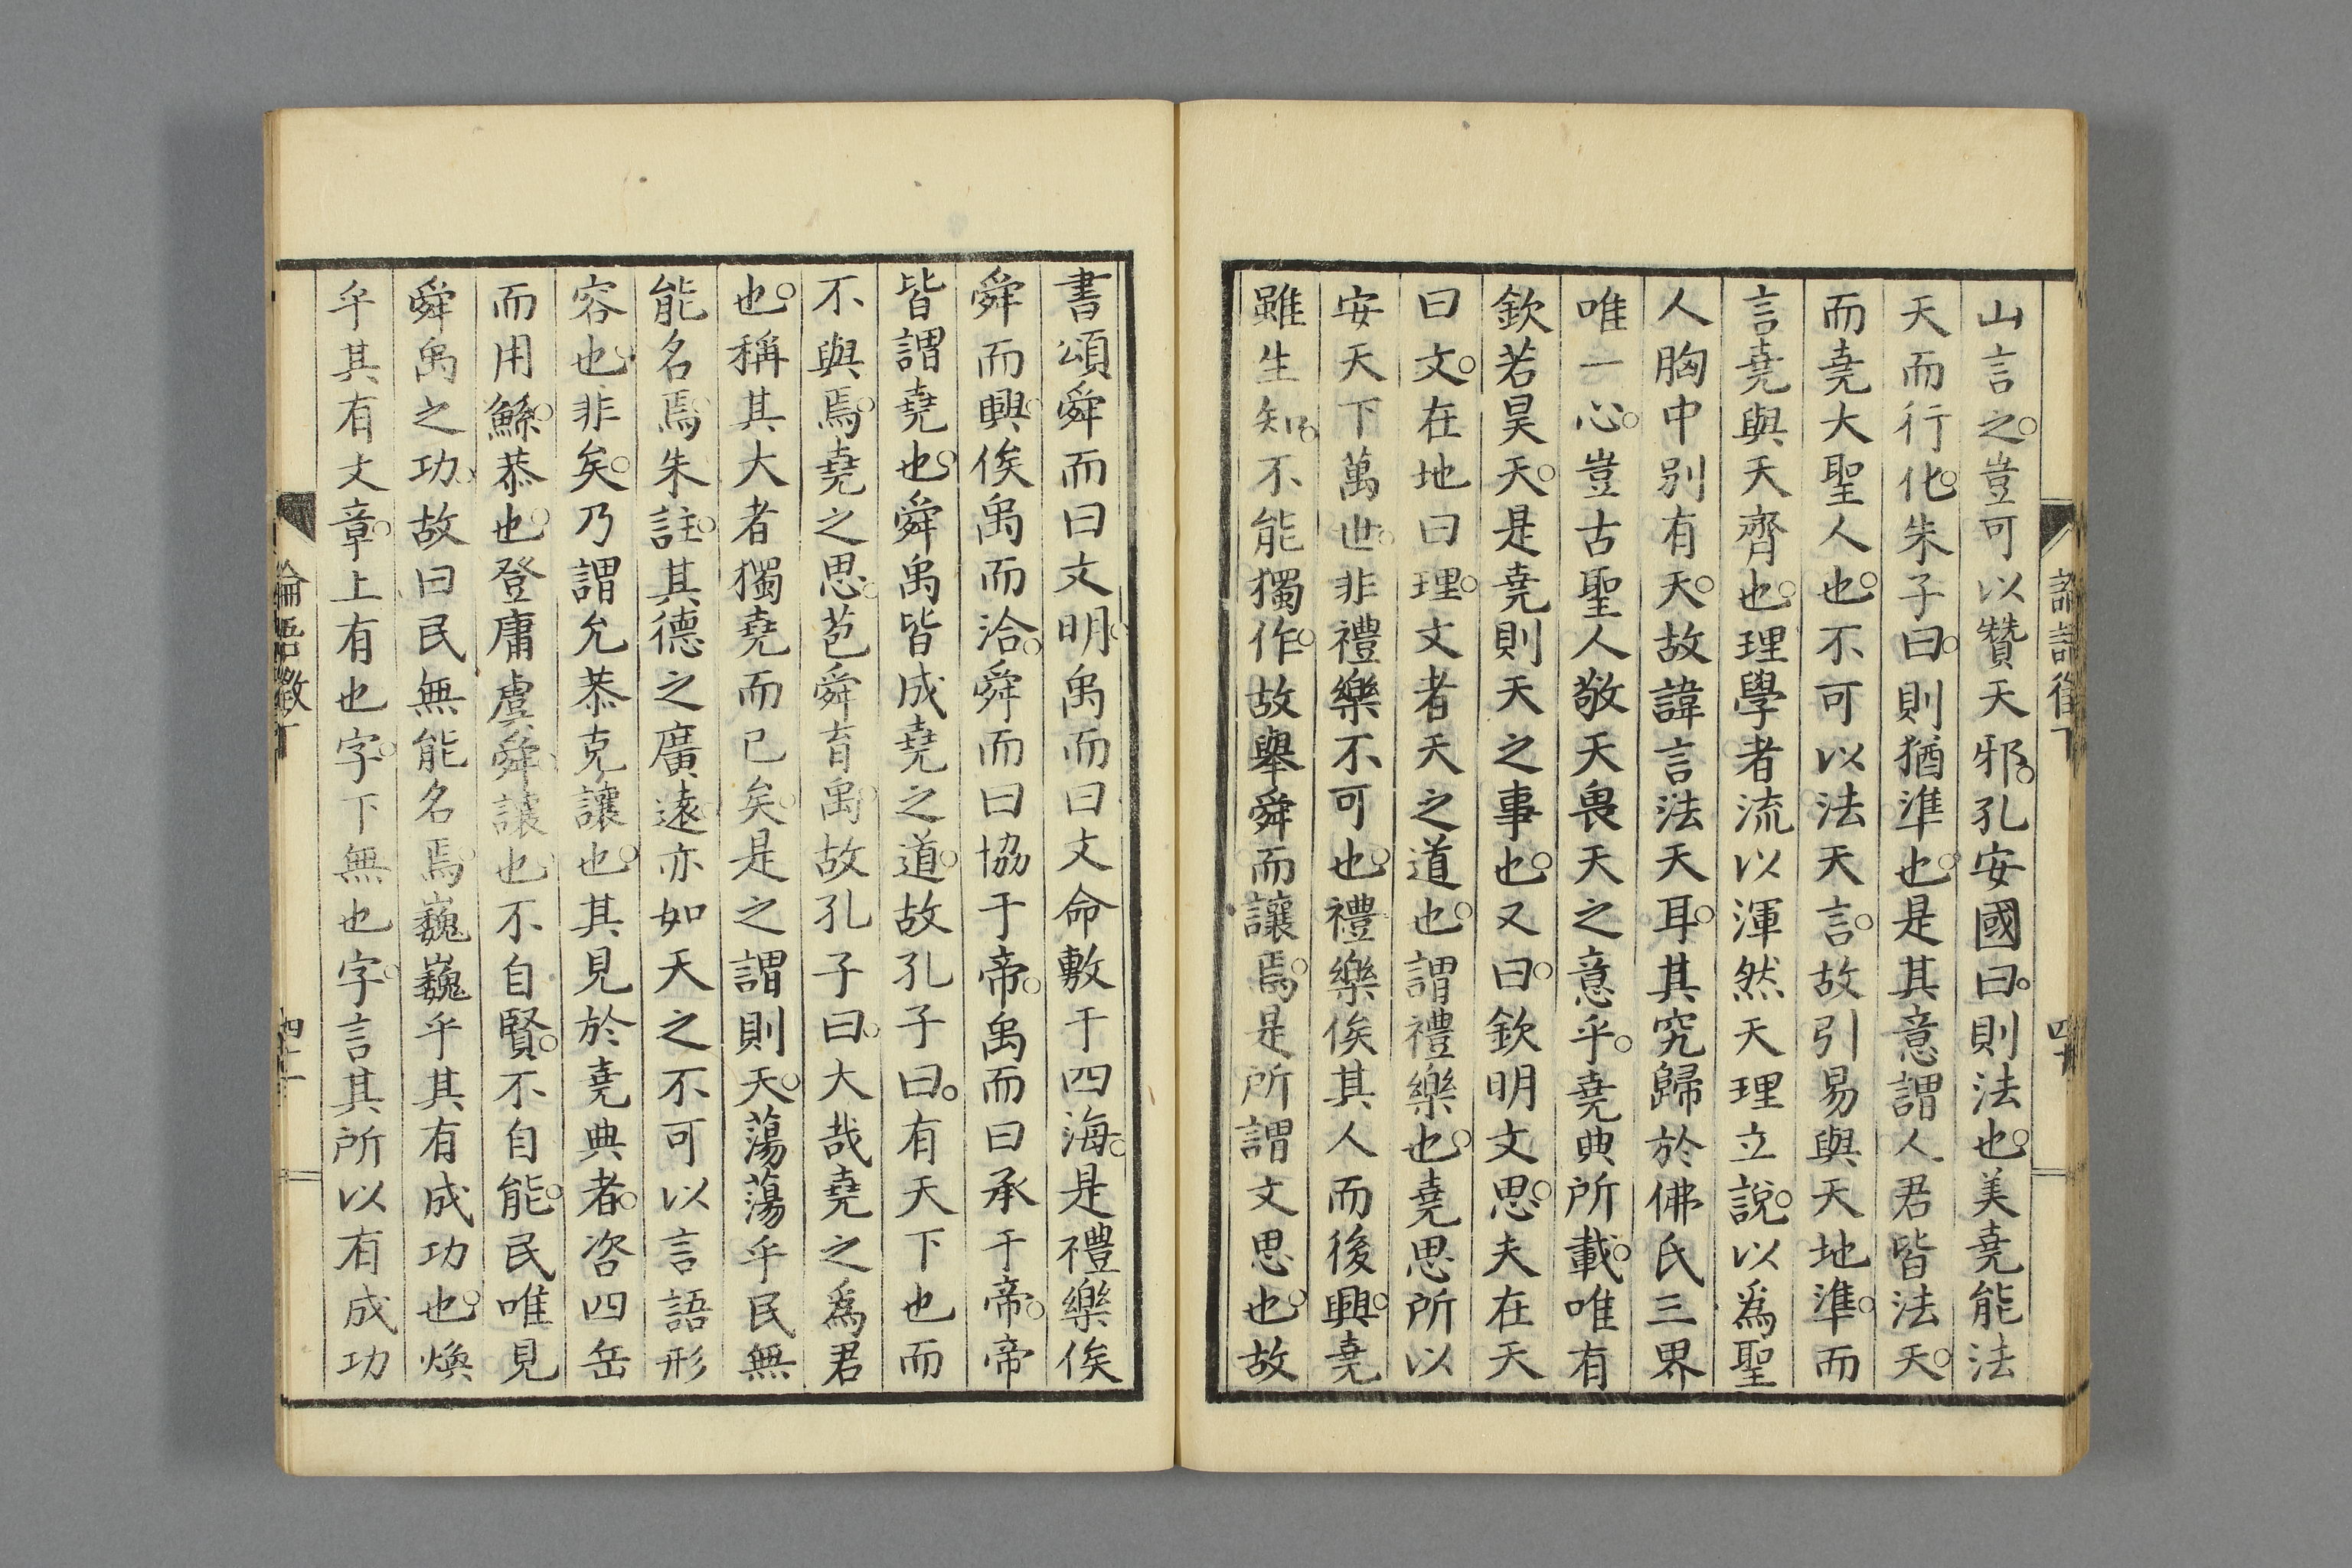 山言之。豈可以贊天邪。孔安國曰。則法也。美堯能法
天而行化。朱子曰。則猶準也。是其意謂人君皆法天。
而堯大聖人也。不可以法天言。故引易與天地準。而
言堯與天齊也。理學者流以渾然天理立說。以爲聖
人胸中別有天。故諱言法天耳。其究歸於佛氏三界
唯一心。豈古聖人敬天畏天之意乎。堯典所載。唯有
欽若昊天。是堯則天之事也。又曰。欽明文思。夫在天
曰文。在地曰理。文者天之道也。謂禮樂也。堯思所以
安天下萬世。非禮樂不可也。禮樂俟其人而後興。堯
雖生知。不能獨作。故舉舜而讓焉。是所謂文思也。故
書頌舜而曰文明。禹而曰文命敷于四海。是禮樂俟
舜而興。俟禹而洽。舜而曰協于帝。禹而曰承于帝。帝
皆謂堯也。舜禹皆成堯之道。故孔子曰。有天下也而
不與焉。堯之思。苞舜育禹。故孔子曰。大哉堯之爲君
也。稱其大者獨堯而已矣。是之謂則天。蕩蕩乎民無
能名焉。朱註。其德之廣遠。亦如天之不可以言語形
容也。非矣。乃謂允恭克讓也。其見於堯典者。咨四岳
而用鯀。恭也。登庸虞舜。讓也。不自賢。不自能。民唯見
舜禹之功。故曰民無能名焉。巍巍乎其有成功也。煥
乎其有文章。上有也字。下無也字。言其所以有成功
論語徵丁
四十一